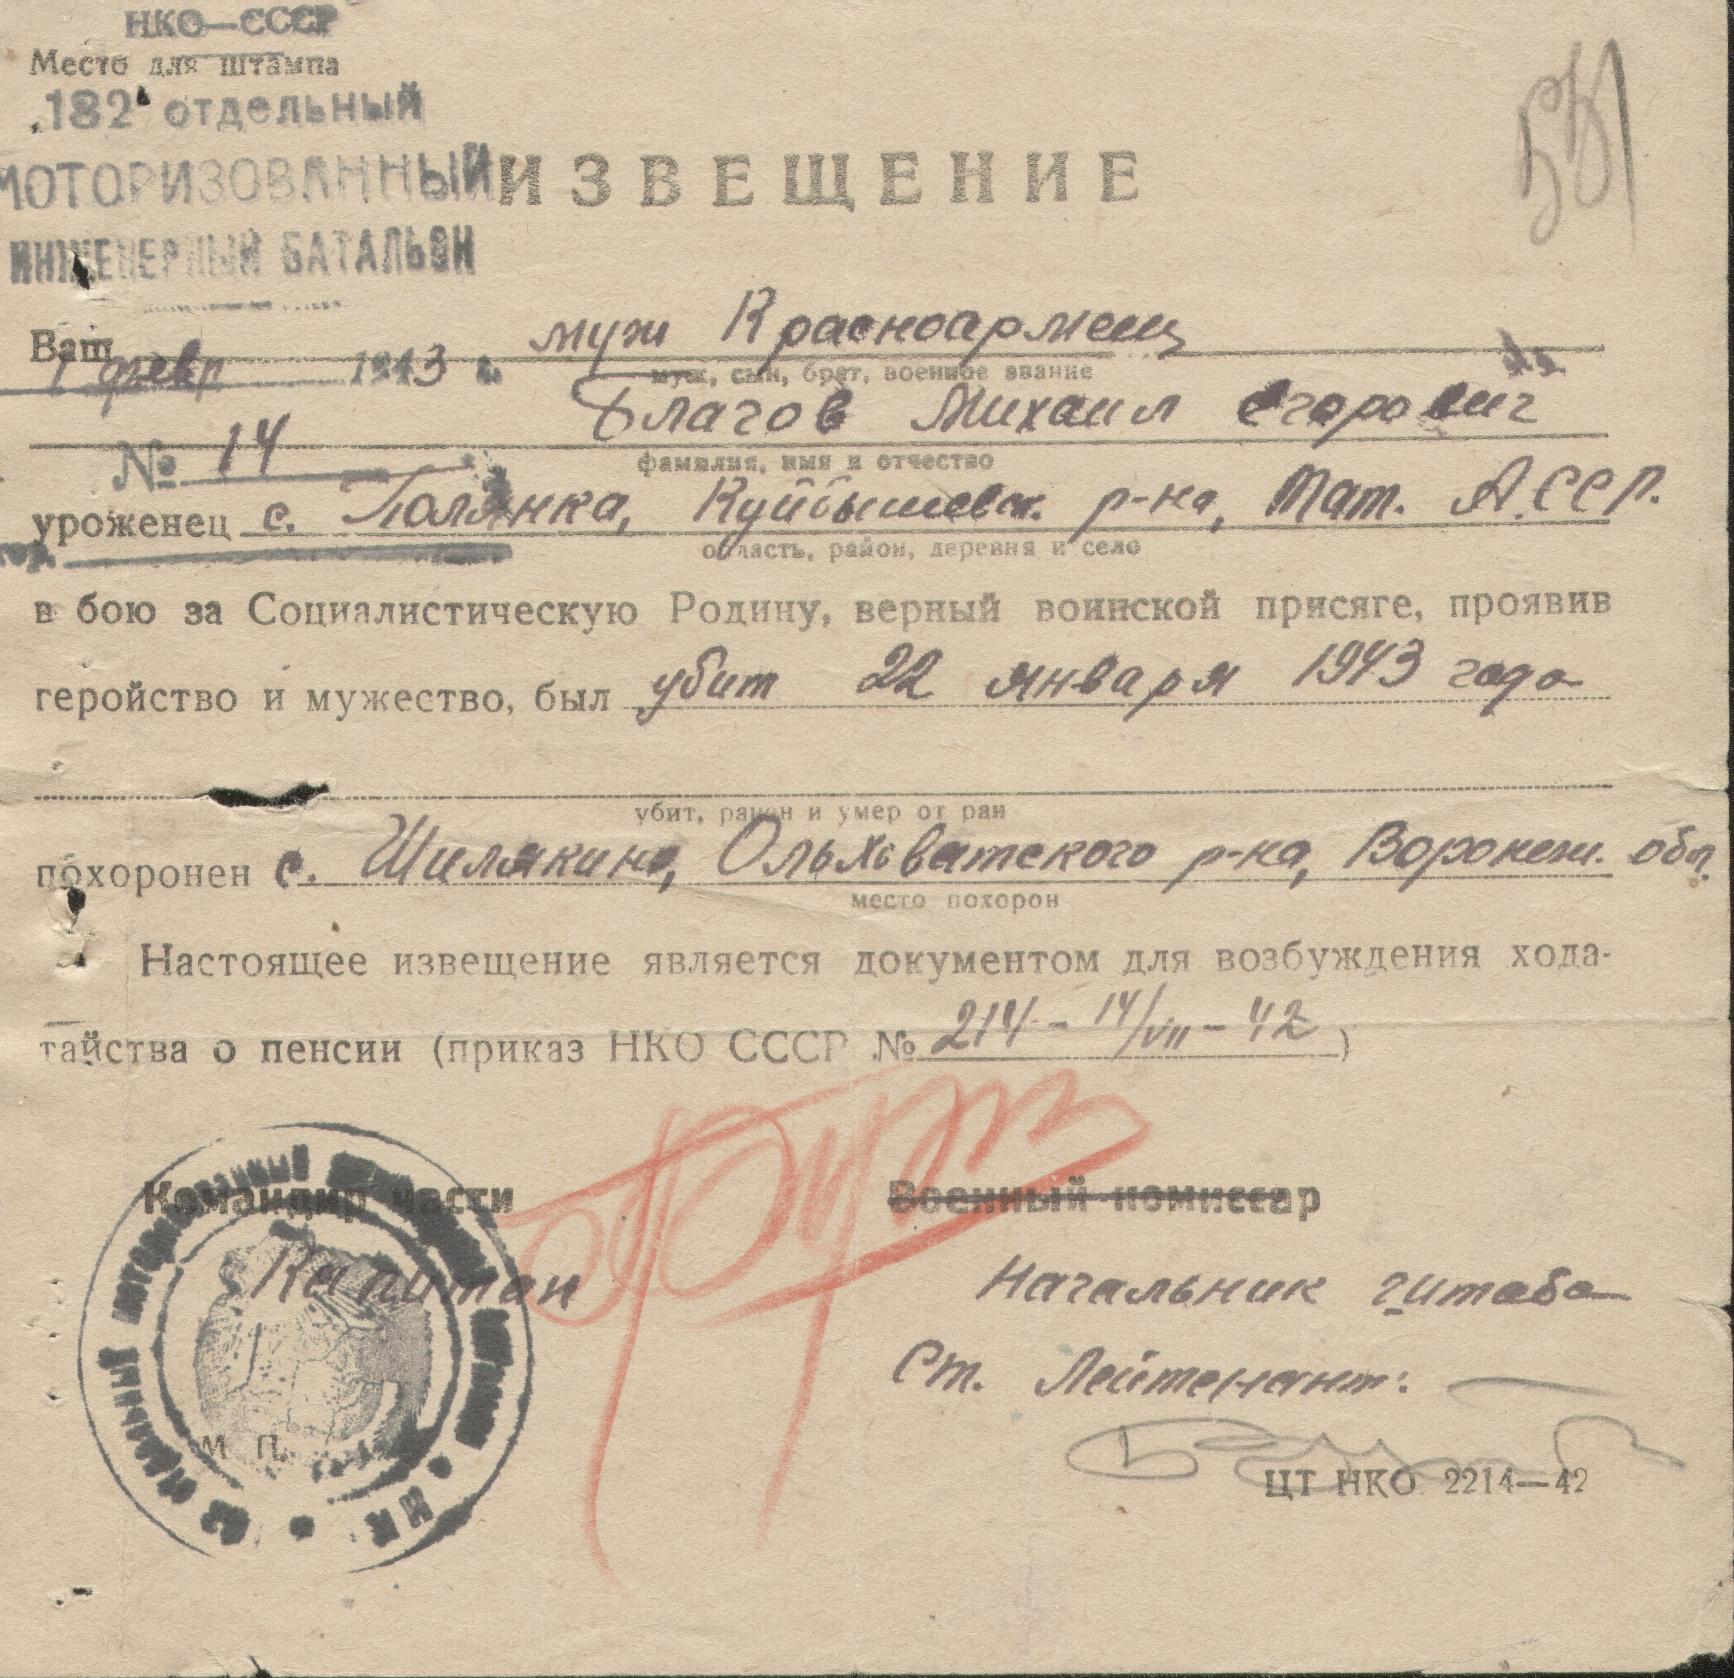 НКО—СССР
Место для штампа
182 отдельный
МОТОРИЗОВАННЫЙ
ИНЖЕНЕРНЫЙ БАТАЛЬОН
ИЗВЕЩЕНИЕ
Ваш муж Красноармеец
муж, сын, брат, военное звание
1 февр 1943 г.
Благов Михаил Егорович
фамилия, имя и отчество
№ 14
уроженец с. Полянка, Куйбышевск. р-на, Тат. А.ССР.
область, район, деревня и село
гор.
в бою за Социалистическую Родину, верный воинской присяге, проявив
геройство и мужество, был убит 22 января 1943 года
убит, ранен и умер от ран
похоронен с. Шилякино, Ольховатского р-на, Воронеж. обл.
место похорон
Настоящее извещение является документом для возбуждения хода-
тайства о пенсии (приказ НКО СССР № 214 - 14/VII - 42)
Командир части
Военный комиссар
Капитан
Начальник штаба
Ст. Лейтенант:
М П.
ЦТ НКО 2214—42